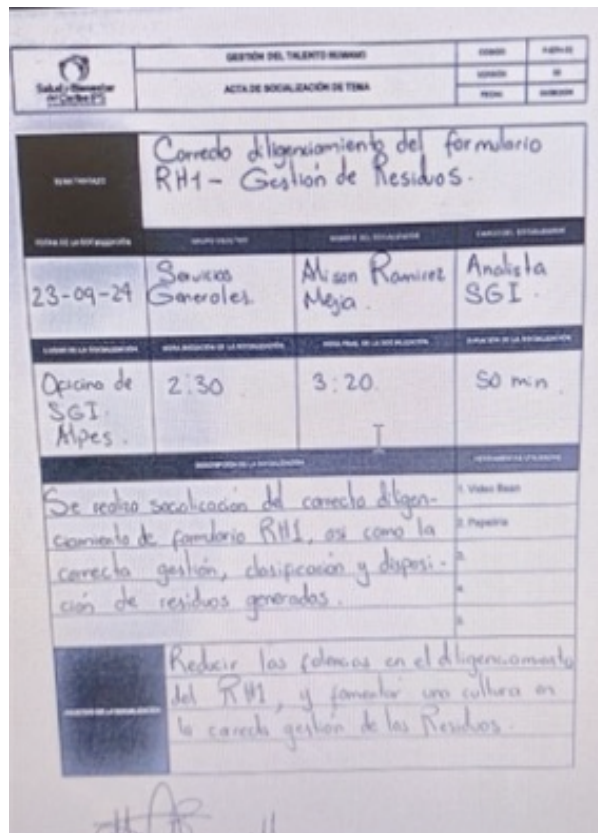 Salud y Bienestar
del Caribe IPS
GESTIÓN DEL TALENTO HUMANO
CODIGO
ACTA DE SOCIALIZACIÓN DE TEMA
VERSIÓN
FECHA
Correcto diligenciamiento del formulario
RH1 - Gestión de Residuos.
FECHA DE LA SOCIALIZACIÓN
GRUPO OBJETIVO
NOMBRE DEL SOCIALIZADOR
CARGO DEL SOCIALIZADOR
23-09-24
Servicios
Generales
Alison Ramirez
Mejia.
Analista
SGI.
LUGAR DE LA SOCIALIZACIÓN
HORA INICIACIÓN DE LA SOCIALIZACIÓN
HORA FINAL DE LA SOCIALIZACIÓN
DURACIÓN DE LA SOCIALIZACIÓN
Oficina de
SGI.
Alpes.
2:30
3:20
50 min.
DESCRIPCIÓN DE LA SOCIALIZACIÓN
HERRAMIENTAS UTILIZADAS
Se realizo socalicación del correcto diligen-
ciamiento de formulario RH1, asi como la
correcta gestión, clasificación y disposi-
ción de residuos generados.
1. Video Beam
2. Papeleria
3.
4.
5.
OBJETIVO DE LA SOCIALIZACIÓN
Reducir las falencias en el diligenciamiento
del RH1, y fomentar una cultura en
la correcta gestión de los Residuos.